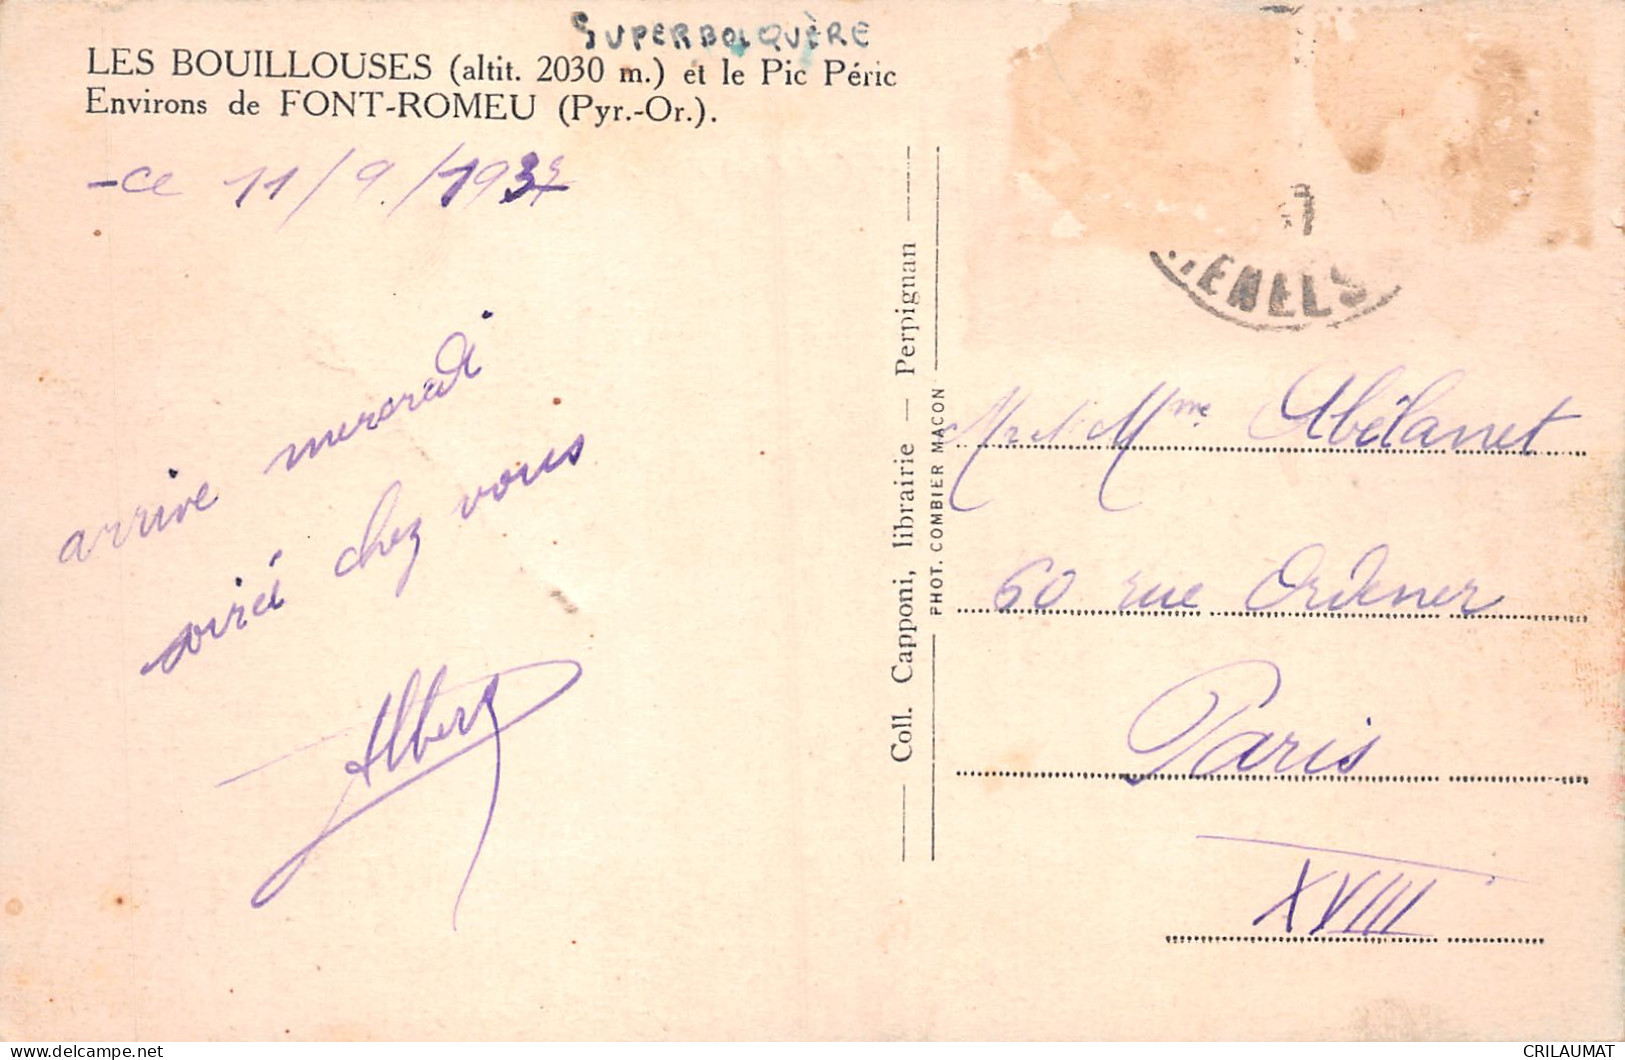 SUPERBOLQUÈRE
LES BOUILLOUSES (altit. 2030 m.) et le Pic Péric
Environs de FONT-ROMEU (Pyr.-Or.).
-ce 11/9/193
arrive mercredi
soirée chez vous
Albert
Coll. Capponi, librairie — Perpignan
PHOT. COMBIER MACON
ENELS
Mr et Mme Abélanet
60 rue Ordener
Paris
XVIII
CRILAUMAT